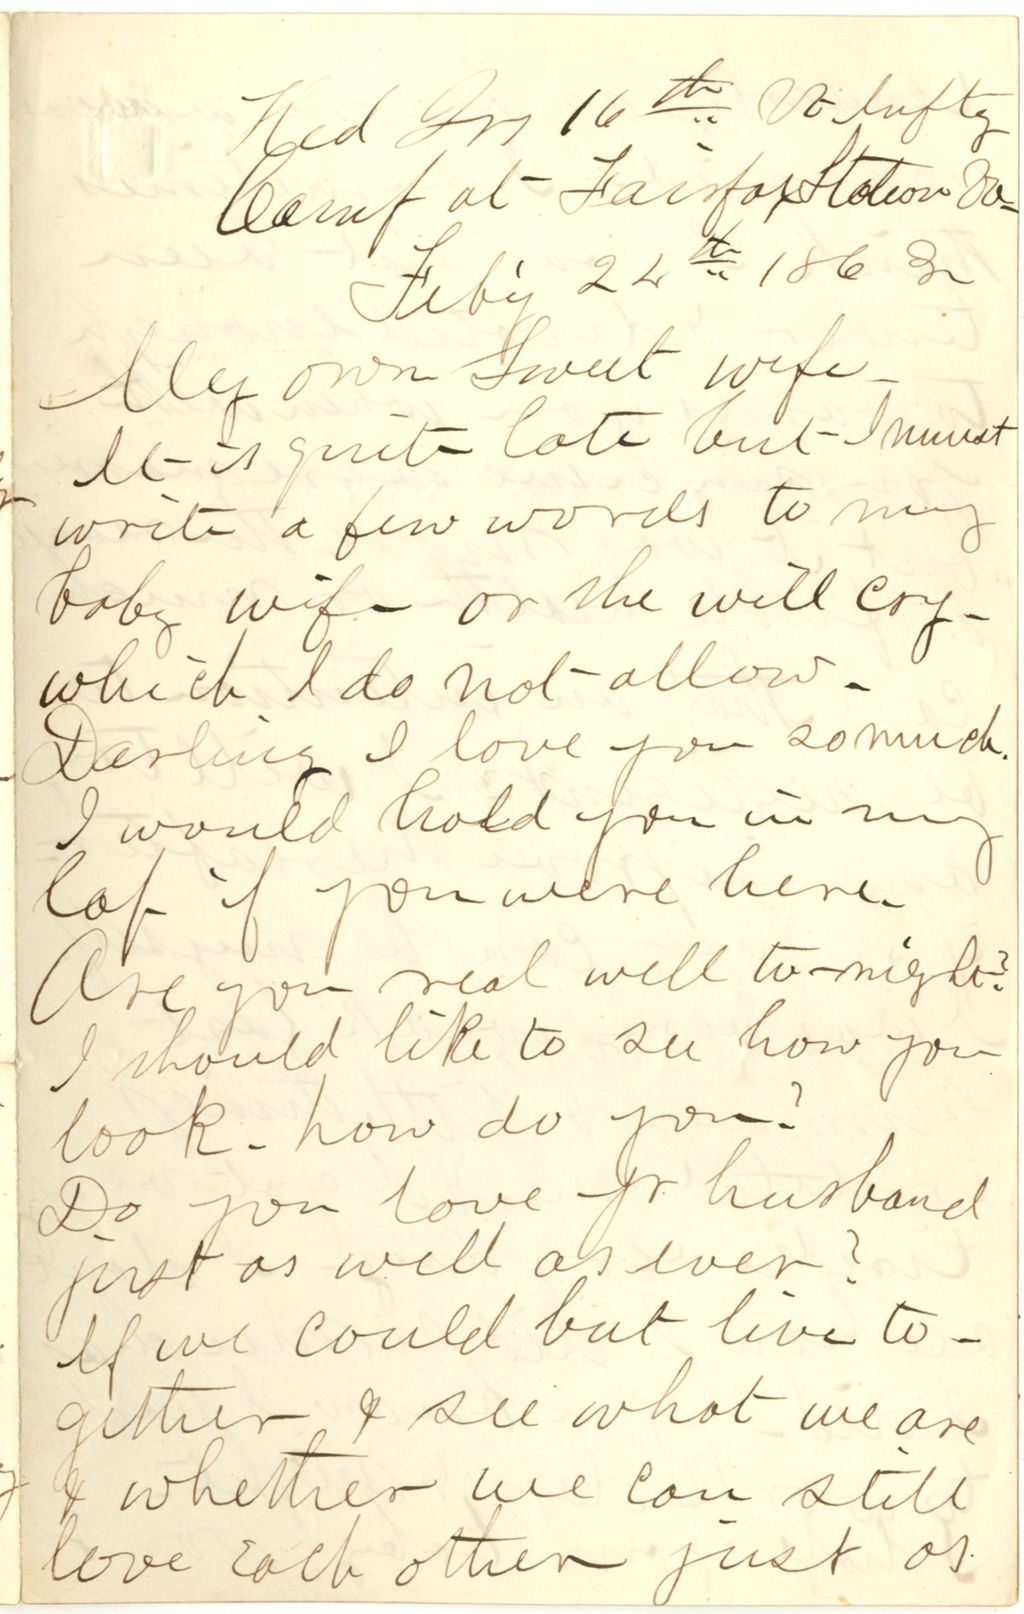 Hed Qrs 16th Vt Infty
Camp at Fairfax Station Va
Feby 24th 1863
My own Sweet wife
It is quite late but I must
write a few words to my
baby wife or she will cry -
which I do not allow.
Darling I love you so much.
I would hold you in my
lap if you were here.
Are you real well to-night?
I should like to see how you
look - how do you?
Do you love yr husband
just as well as ever?
If we could but live to-
gether & see what we are
& whether we can still
love each other just as